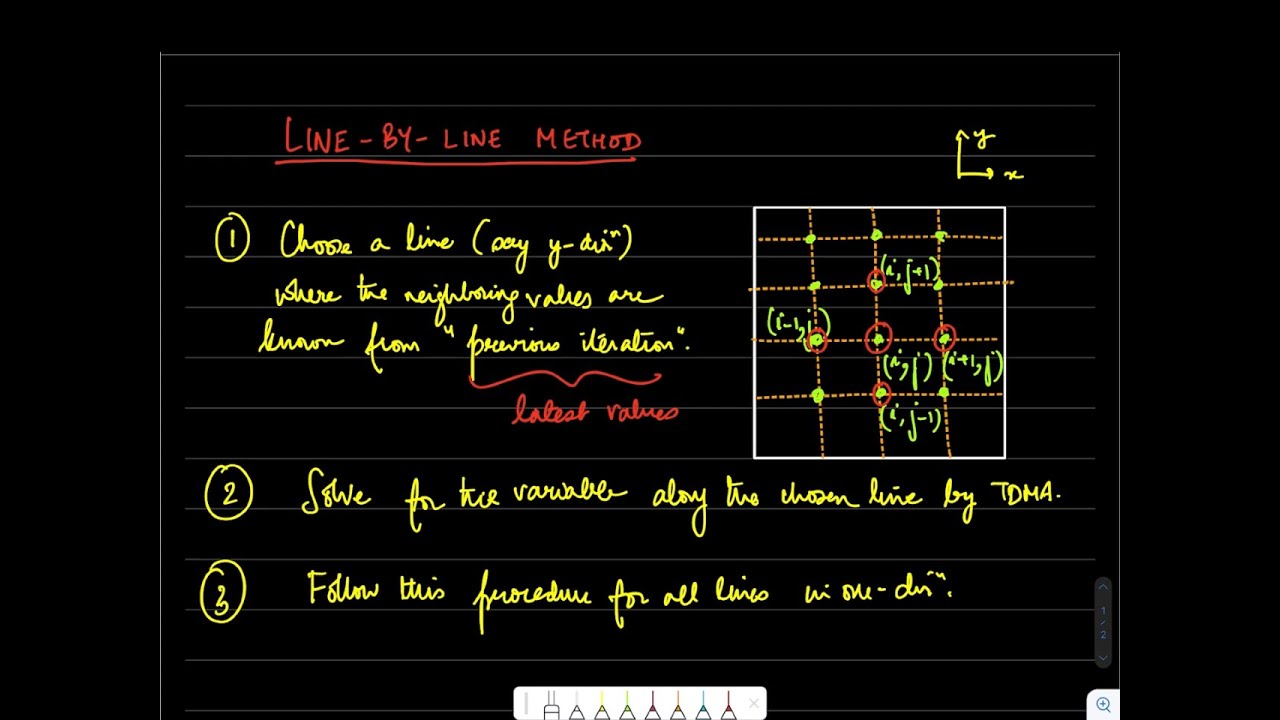 LINE-BY-LINE METHOD
y
x
① Choose a line (say y-dirⁿ)
where the neighboring values are
known from "previous iteration".
latest values
(i,j+1)
(i-1,j)
(i,j) (i+1,j)
(i,j-1)
② Solve for the variable along the chosen line by TDMA.
③ Follow this procedure for all lines in one-dirⁿ.
1
/
2